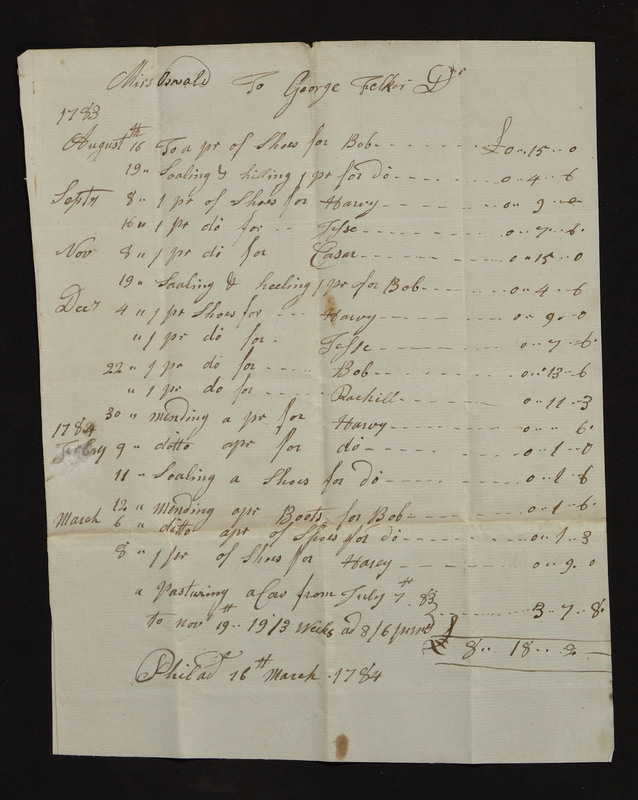 Mrs Oswald To George Felker Dr
1783
August 16th To a pr of Shoes for Bob - - - £0 .. 15 .. 0
19 " Soaling & hilling 1 pr for do - - - 0 .. 4 .. 6
Septr 8 " 1 pr of Shoes for Harvy - - - 0 .. 9 .. 0
16 " 1 pr do for - - Jesse - - - 0 .. 7 .. 6
Nov 8 " 1 pr do for Cesar - - - 0 .. 15 .. 0
19 " Soaling & heeling 1 pr for Bob - - - 0 .. 4 .. 6
Decr 4 " 1 pr Shoes for - - - Harvy - - - 0 .. 9 .. 0
" 1 pr do for - Jesse - - - 0 .. 7 .. 6
22 " 1 pr do for - - - Bob - - - 0 .. 13 .. 6
" 1 pr do for - - - Rachill - - - 0 .. 11 .. 3
30 " mending a pr for Harvy - - - 0 .. " .. 6
1784
Febry 9 " ditto apr for do - - - 0 .. 1 .. 0
11 " Soaling a Shoes for do - - - 0 .. 1 .. 6
12 " mending apr Boots for Bob - - - 0 .. 1 .. 6
March 6 " ditto apr of Shoes for do - - - 0 .. 1 .. 3
8 " 1 pr of Shoes for Harvy - - - 0 .. 9 .. 0
a Pasturing a Cow from July 7th 83
to novr 19th .. 19 1/3 Weeks ad 3/6 - - - 3 .. 7 .. 8
£ 8 .. 18 .. 2
Philada 16th March 1784